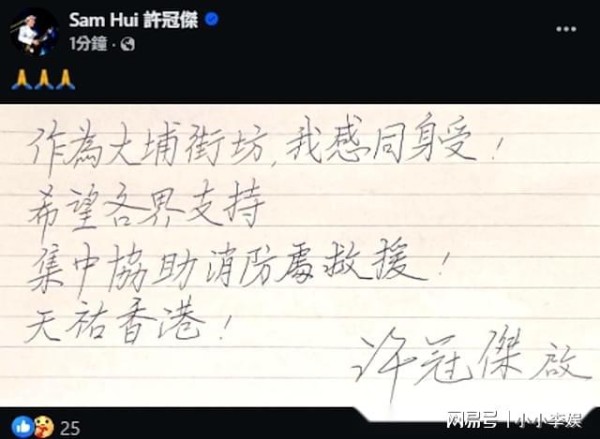 Sam Hui 許冠傑
1分鐘
🙏🙏🙏
作為大埔街坊,我感同身受!
希望各界支持
集中協助消防處救援!
天祐香港!
許冠傑 啟
25
网易号 | 小小李娱